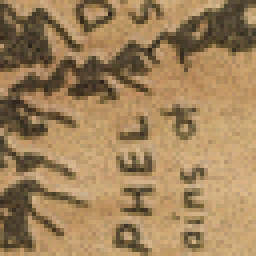 PHEL
ains of